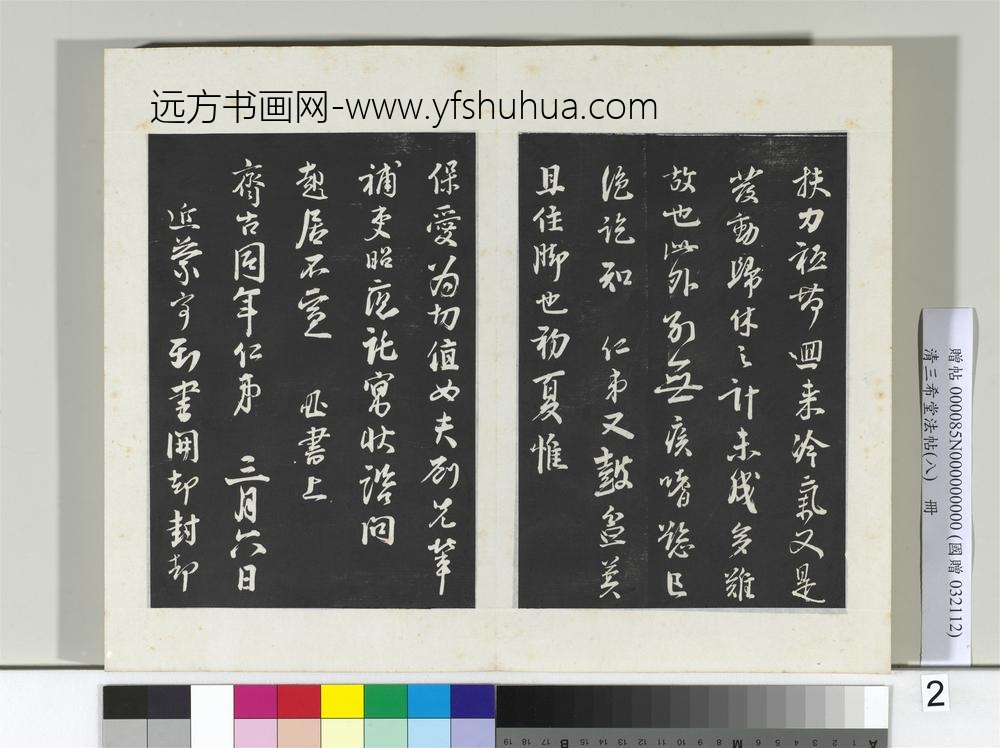 远方书画网-www.yfshuhua.com
扶力祗 迴来冷氣又是
發動歸休之计未成多難
故也此外幼無疾嗜慾已
絶訖知 仁弟又鼓盆莫
且住脚也初夏惟
保愛为切值女夫 兄革
補吏昭應託寓狀諮問
起居不宣 書上
齊古同年仁弟 三月六日
近蒙寄到書開却封却
贈帖 000085N000000000 (國贈 032112)
清三希堂法帖(八) 冊
2
19 18 17 16 15 B 12 11 10 9 8 M 6 5 4 3 2 1 A